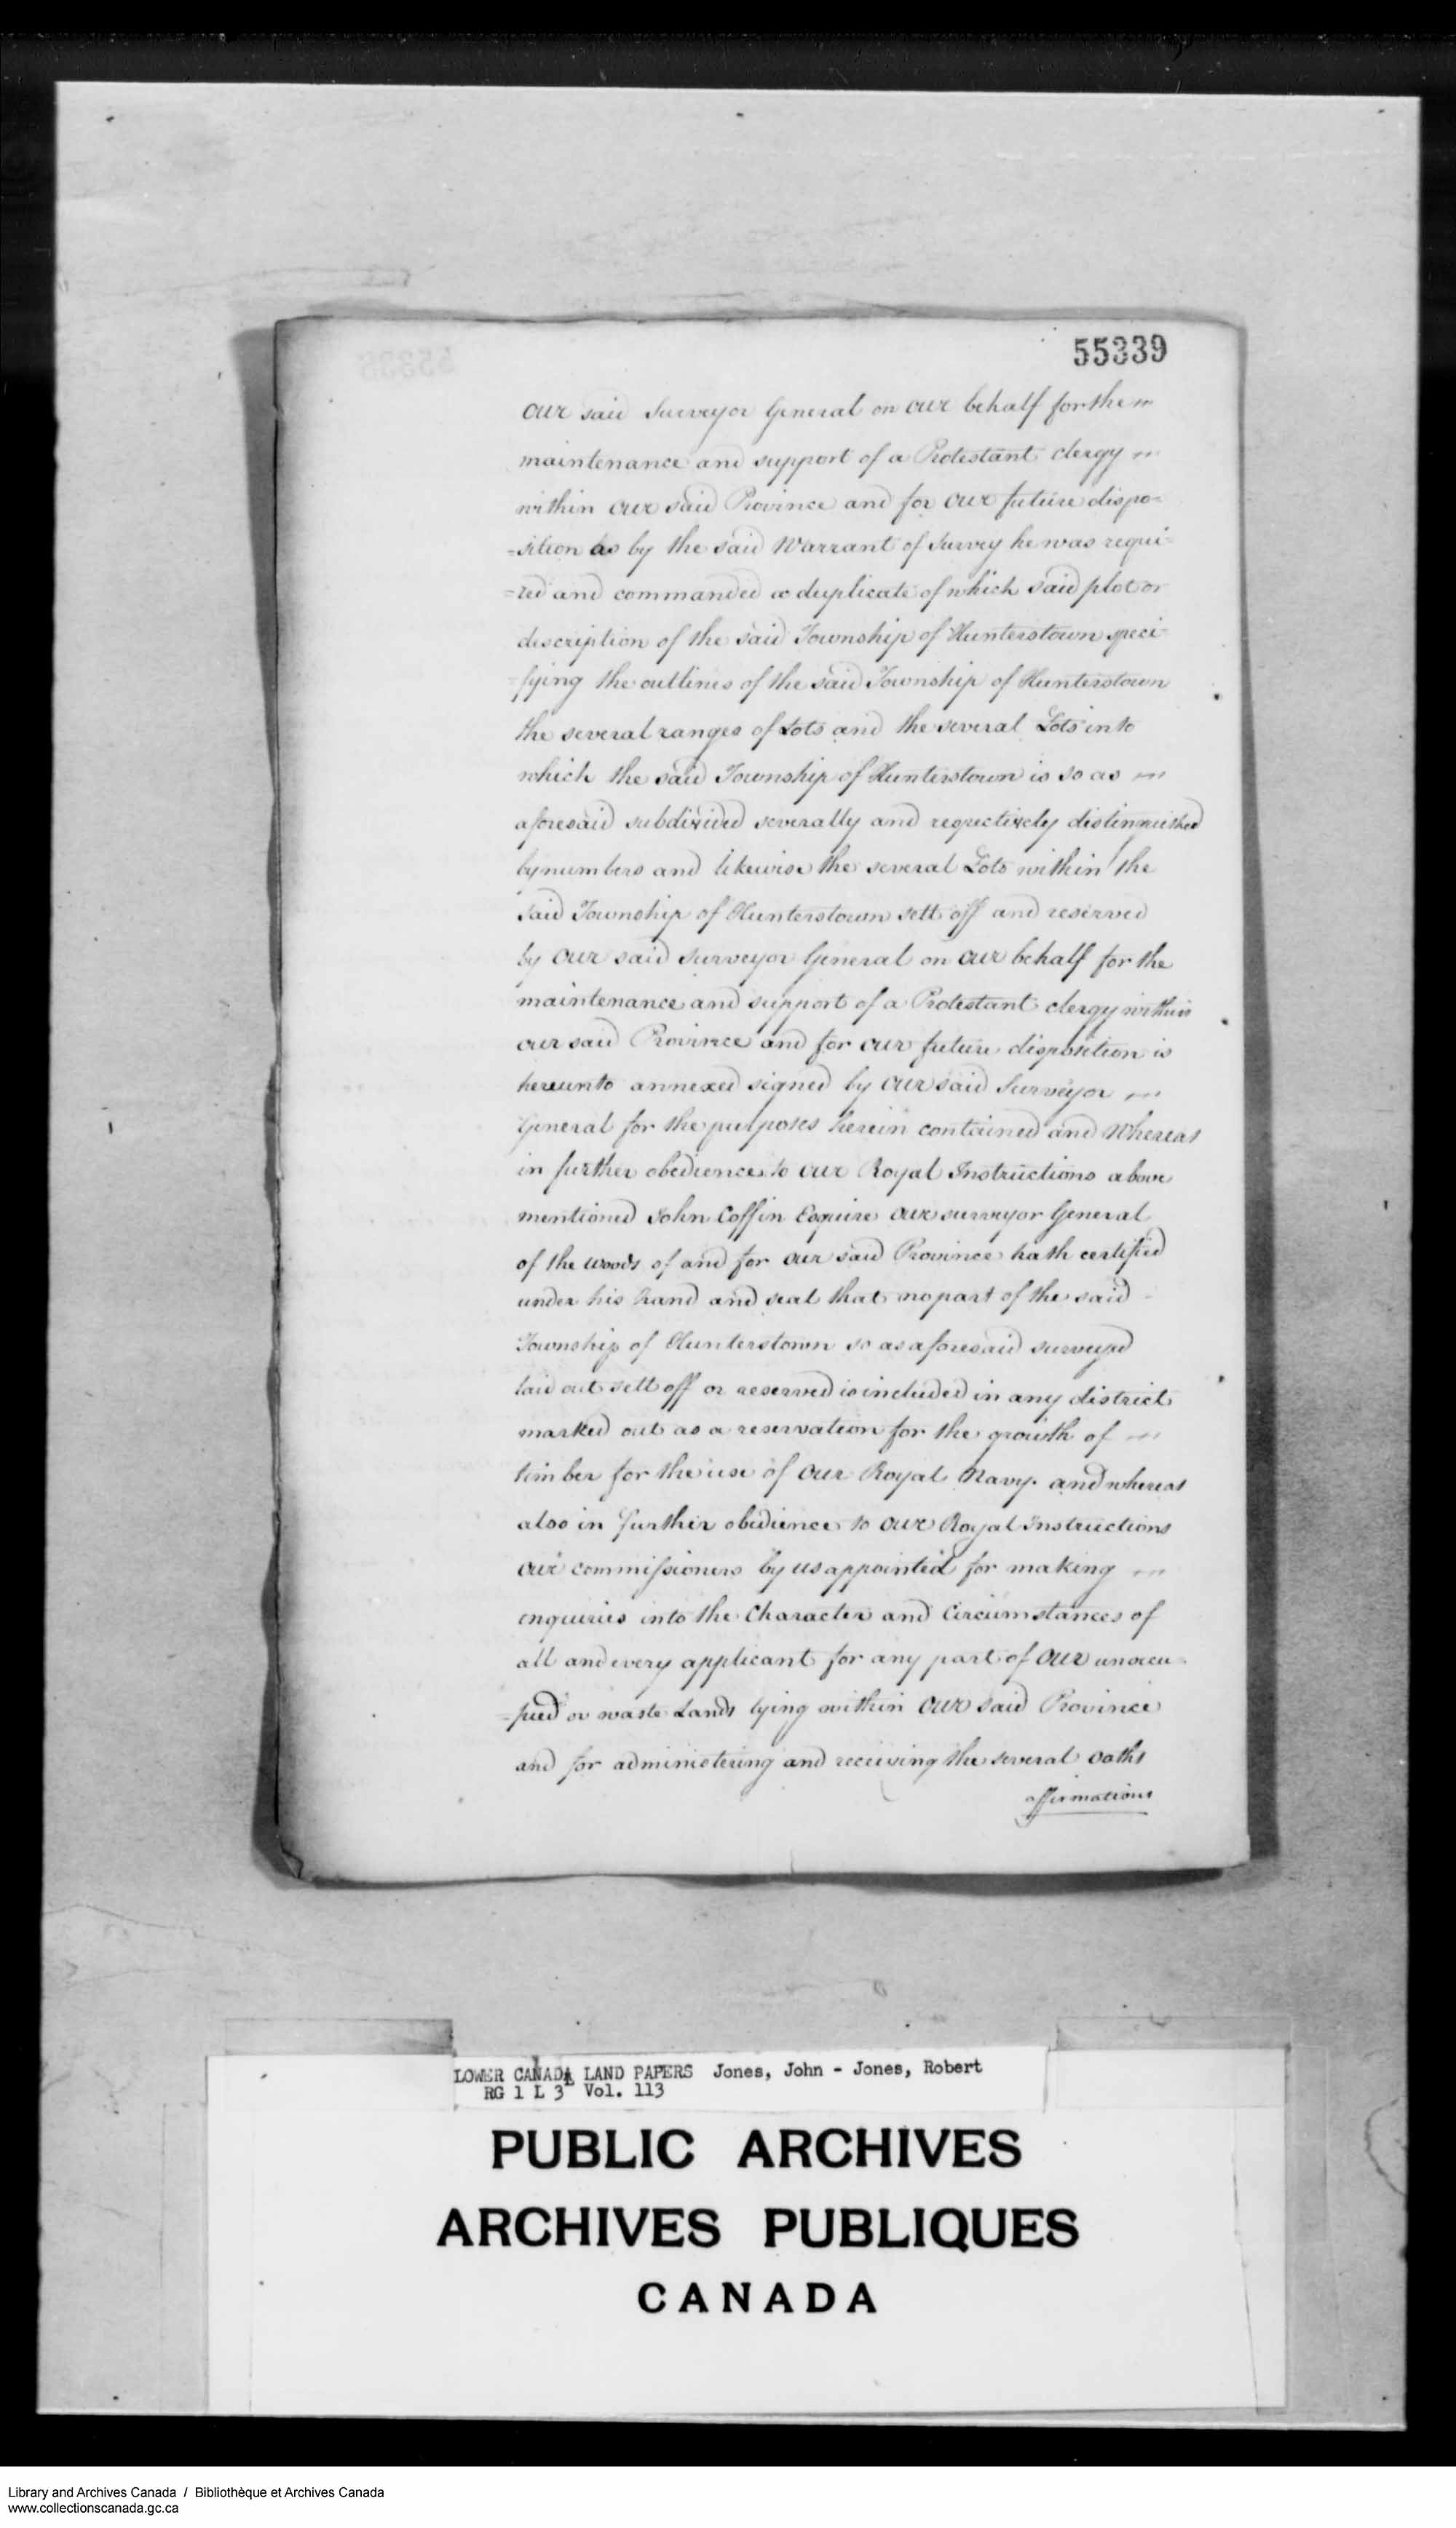 55339
our said Surveyor General on our behalf for the
maintenance and support of a Protestant clergy
within our said Province and for our future dispo=
=sition as by the said Warrant of Survey he was requi=
=red and commanded a duplicate of which said plot or
description of the said Township of Hunterstown speci=
=fying the outlines of the said Township of Hunterstown
the several ranges of Lots and the several Lots into
which the said Township of Hunterstown is so as
aforesaid subdivided severally and respectively distinguished
by numbers and likewise the several Lots within the
said Township of Hunterstown sett off and reserved
by our said Surveyor General on our behalf for the
maintenance and support of a Protestant clergy within
our said Province and for our future disposition is
hereunto annexed signed by our said Surveyor
General for the purposes herein contained and Whereas
in further obedience to our Royal Instructions above
mentioned John Coffin Esquire our surveyor General
of the woods of and for our said Province hath certified
under his hand and seal that no part of the said
Township of Hunterstown so as aforesaid surveyed
laid out sett off or reserved is included in any district
marked out as a reservation for the growth of
timber for the use of our Royal Navy. and whereas
also in further obedience to our Royal Instructions
our commissioners by us appointed for making
enquiries into the Character and Circumstances of
all and every applicant for any part of our unoccu=
=pied or waste Lands lying within our said Province
and for administering and receiving the several oaths
affirmations
LOWER CANADA LAND PAPERS Jones, John - Jones, Robert
RG 1 L 3 Vol. 113
PUBLIC ARCHIVES
ARCHIVES PUBLIQUES
CANADA
Library and Archives Canada / Bibliothèque et Archives Canada
www.collectionscanada.gc.ca